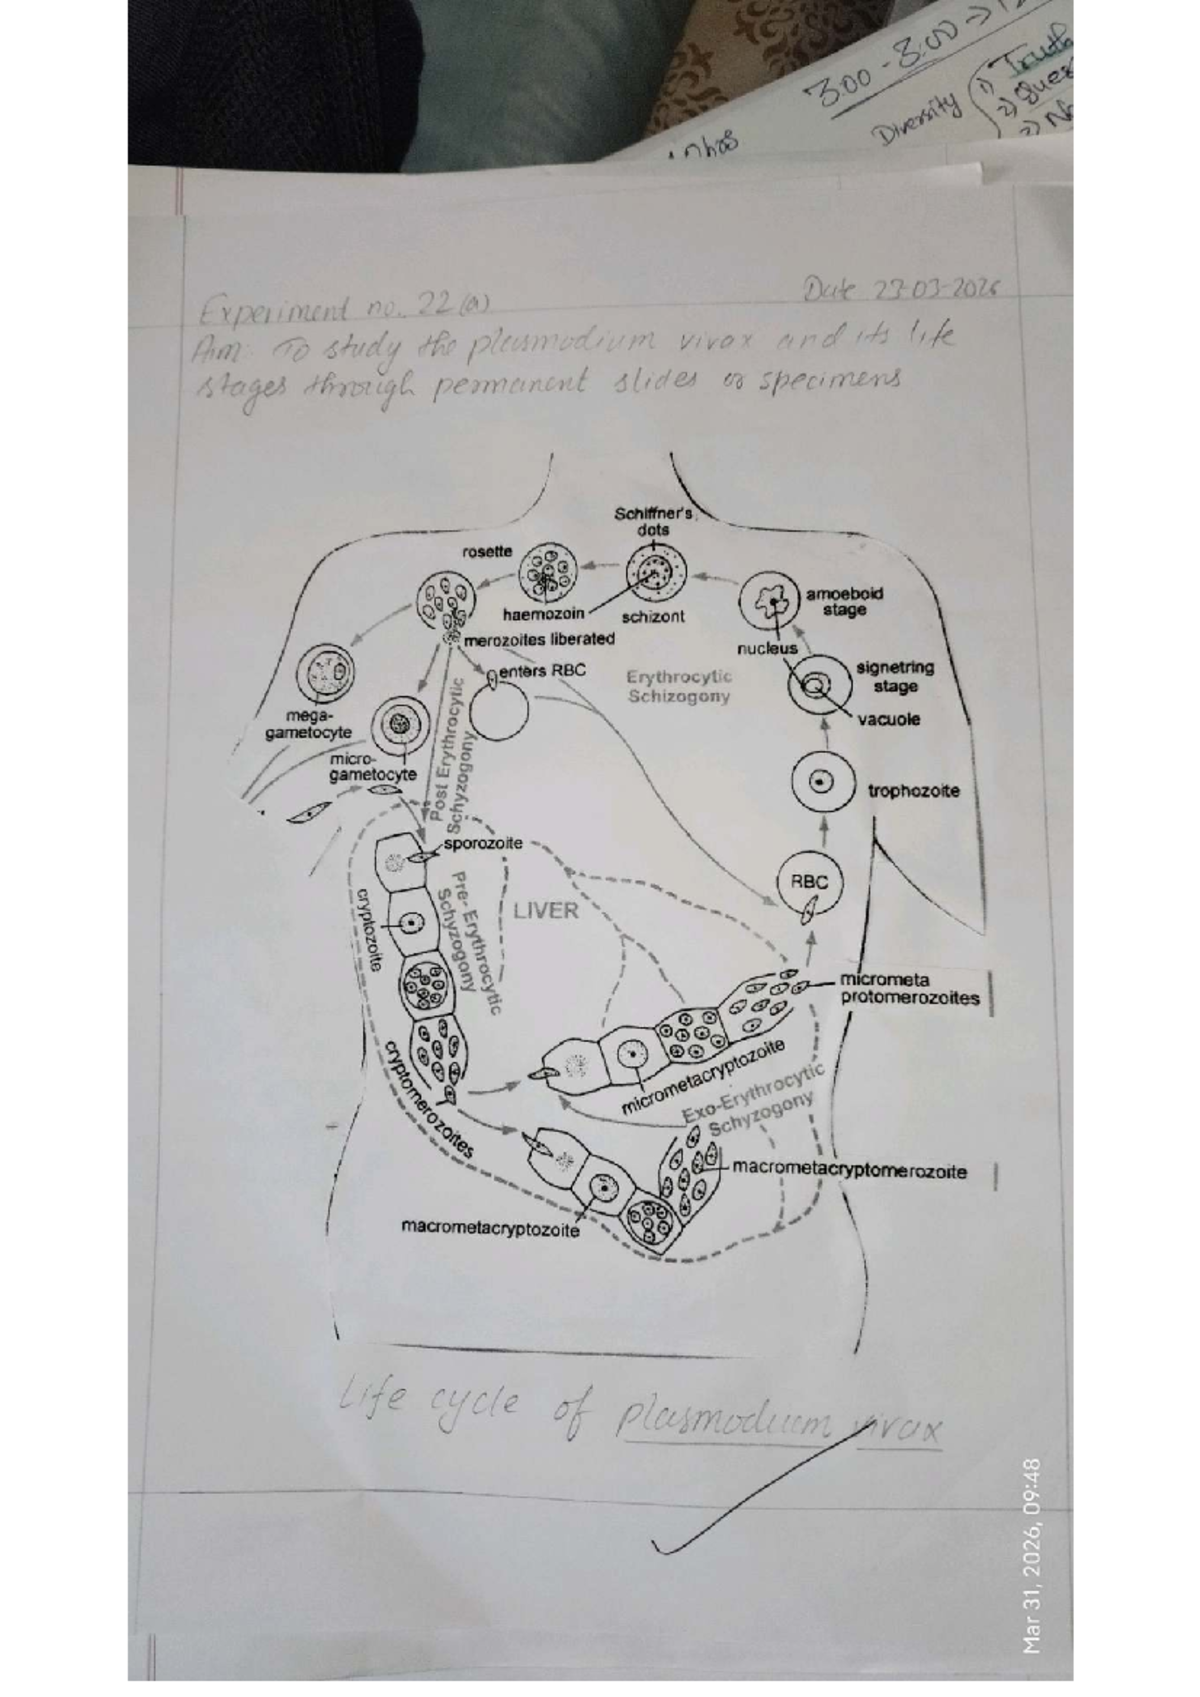 3:00 - 8:00 →
Diversity
1) Truth
2)
3)
Date 23-03-2026
Experiment no. 22(a)
Aim: To study the plasmodium vivax and its life
stages through permanent slides or specimens
Schiffner's
dots
rosette
haemozoin
schizont
amoeboid
stage
merozoites liberated
nucleus
enters RBC
Erythrocytic
Schizogony
signetring
stage
vacuole
mega-
gametocyte
micro-
gametocyte
Post Erythrocytic
Schyzogony
trophozoite
sporozoite
RBC
cryptozoite
Pre- Erythrocytic
Schyzogony
LIVER
micrometa
protomerozoites
cryptomerozoites
micrometacryptozoite
Exo-Erythrocytic
Schyzogony
macrometacryptomerozoite
macrometacryptozoite
Life cycle of plasmodium vivax
Mar 31, 2026, 09:48